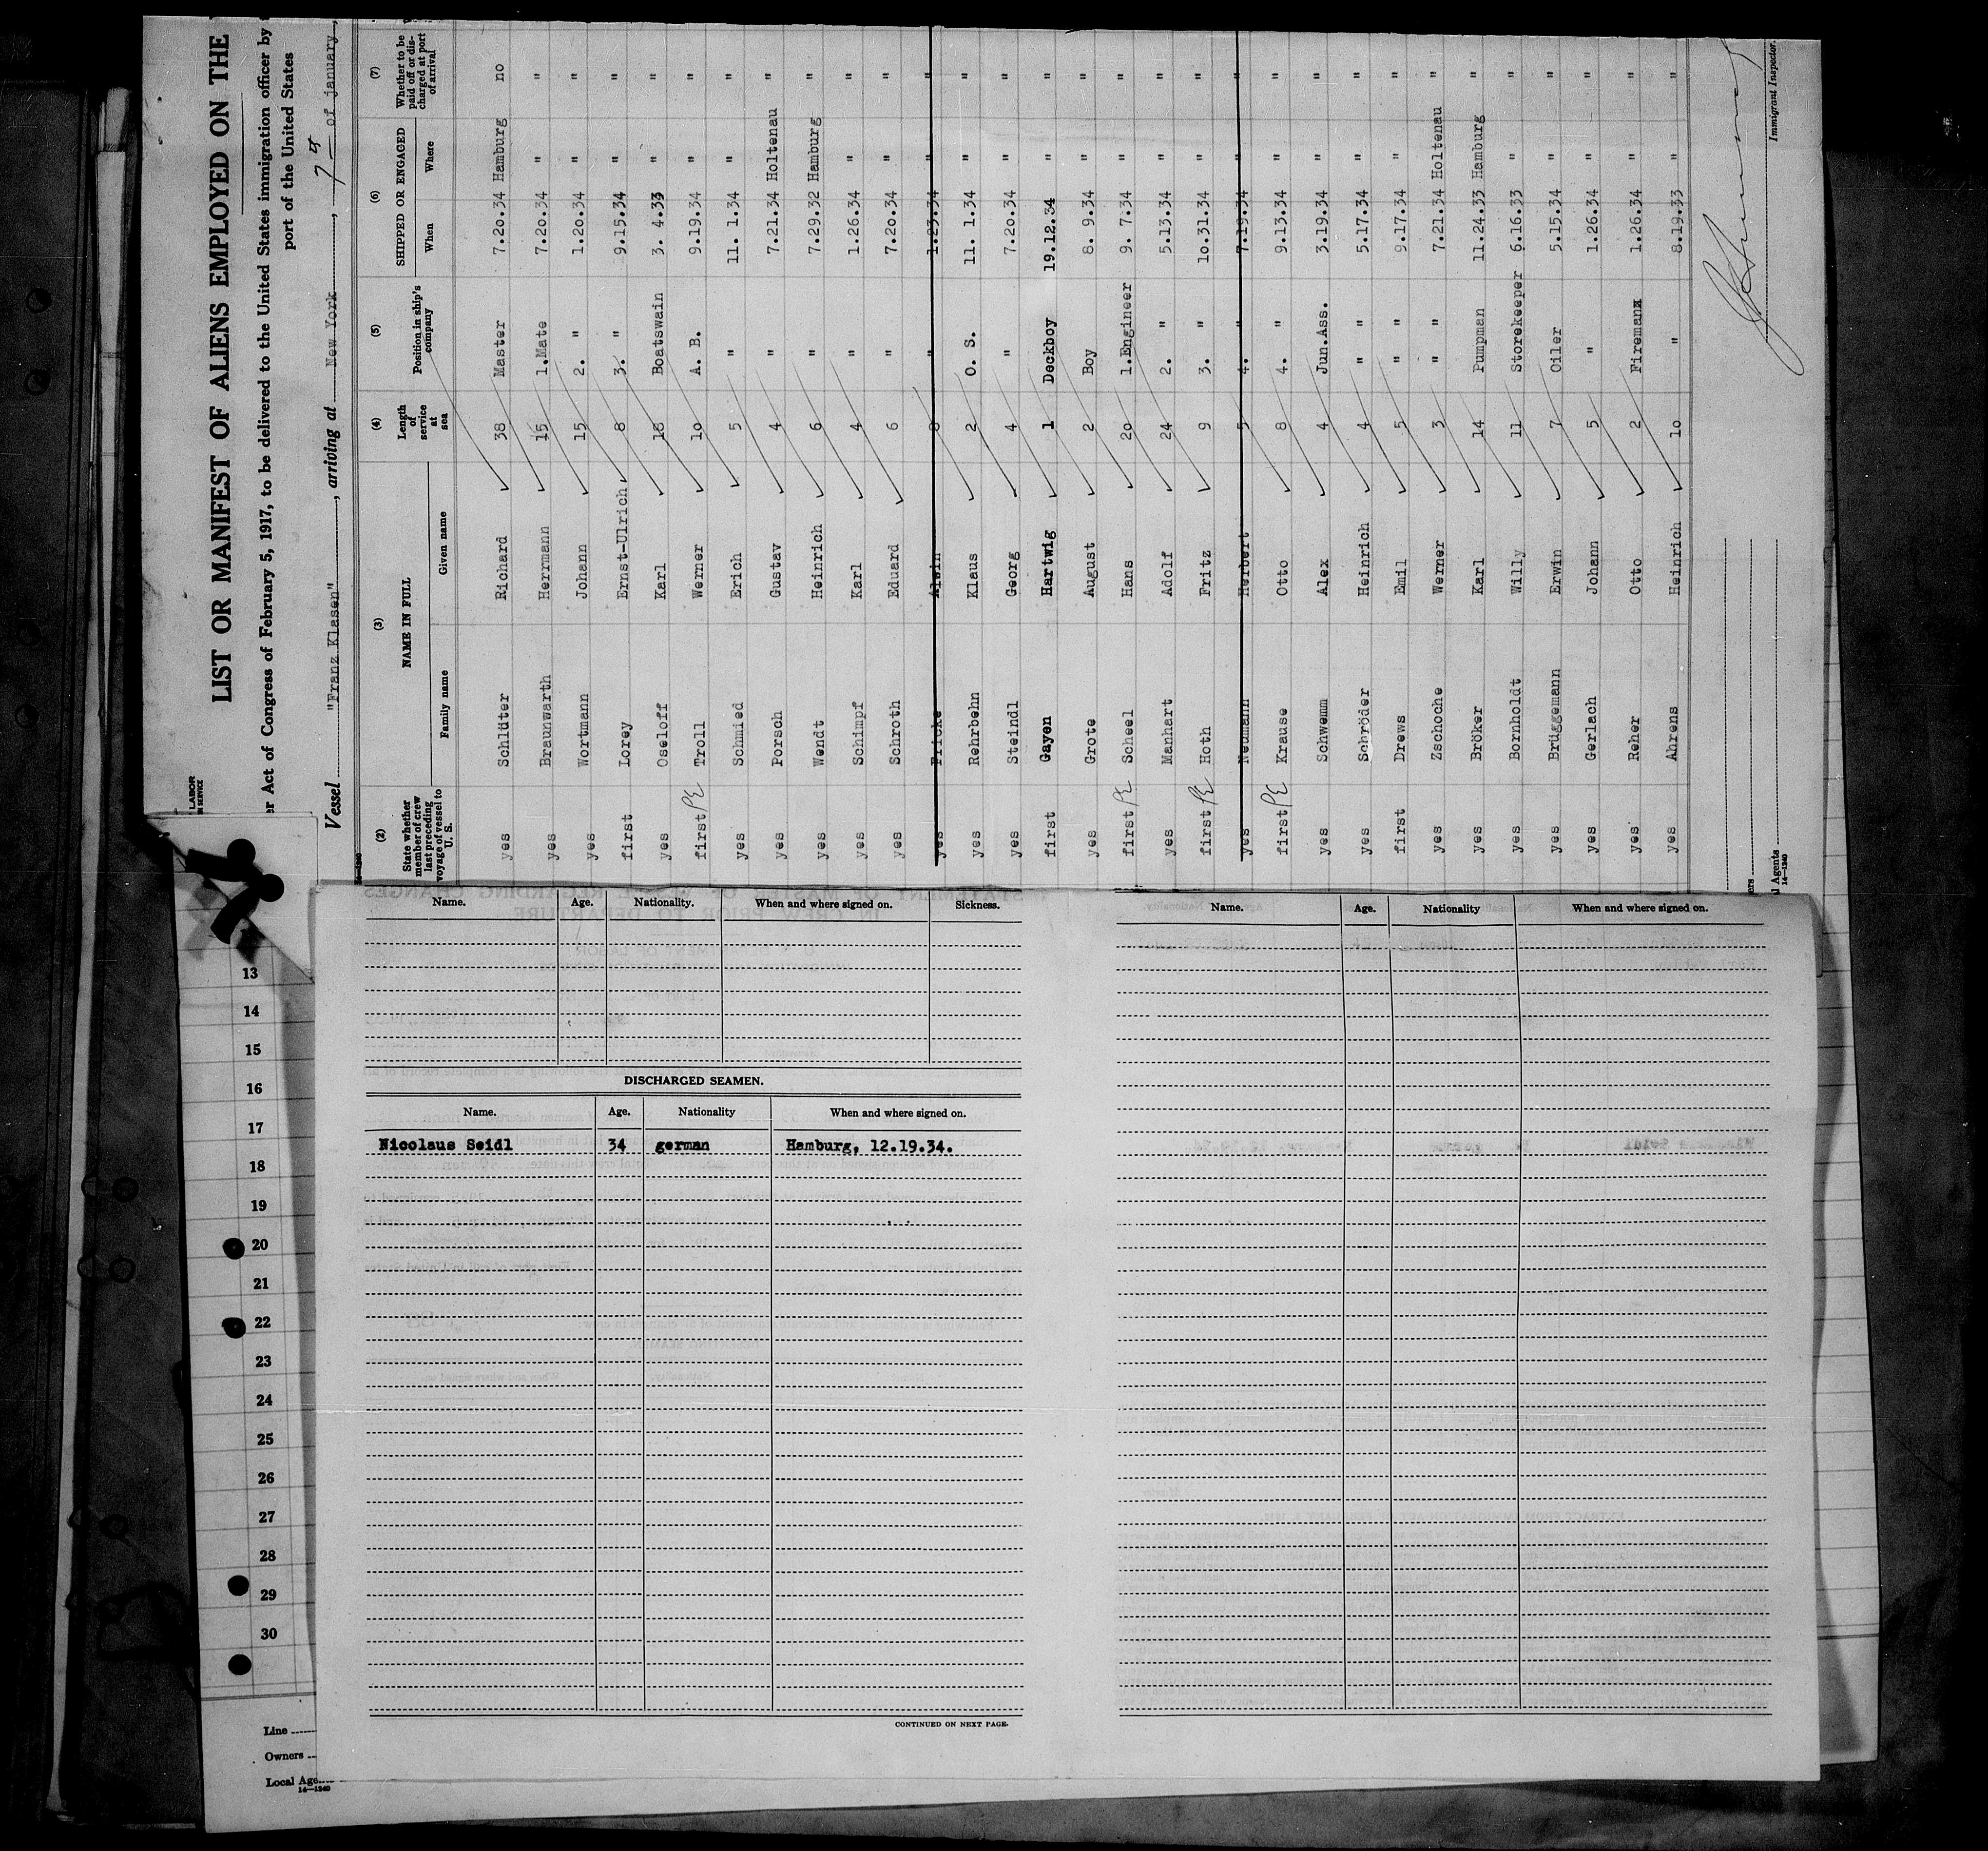 LABOR
N SERVICE
LIST OR MANIFEST OF ALIENS EMPLOYED ON THE
er Act of Congress of February 5, 1917, to be delivered to the United States immigration officer by
port of the United States
Vessel "Franz Klasen", arriving at New York, 7th of january,
(2) (3) (4) (5) (6) (7)
State whether member of crew last preceding voyage of vessel to U. S. NAME IN FULL Length of service at sea Position in ship's company SHIPPED OR ENGAGED Whether to be paid off or discharged at port of arrival
Family name Given name When Where
yes Schlüter Richard 38 Master 7.20.34 Hamburg no
yes Braunwarth Herrmann 15 1.Mate 7.20.34 " "
yes Wortmann Johann 15 2. " 1.20.34 " "
first Lorey Ernst-Ulrich 8 3. " 9.15.34 " "
yes Oseloff Karl 18 Boatswain 3. 4.33 " "
first PE Troll Werner 10 A. B. 9.19.34 " "
yes Schmied Erich 5 " 11. 1.34 " "
yes Porsch Gustav 4 " 7.21.34 Holtenau "
yes Wendt Heinrich 6 " 7.29.32 Hamburg "
yes Schimpf Karl 4 " 1.26.34 " "
yes Schroth Eduard 6 " 7.20.34 " "
yes Fricke Alwin 8 " 1.29.34 " "
yes Rehrbehn Klaus 2 O. S. 11. 1.34 " "
yes Steindl Georg 4 " 7.20.34 " "
first Gayen Hartwig 1 Deckboy 19.12.34 " "
yes Grote August 2 Boy 8. 9.34 " "
first PE Scheel Hans 20 1.Engineer 9. 7.34 " "
yes Manhart Adolf 24 2. " 5.13.34 " "
first PE Hoth Fritz 9 3. " 10.31.34 " "
yes Neumann Herbert 5 4. " 7.19.34 " "
first PE Krause Otto 8 4. " 9.13.34 " "
yes Schwemm Alex 4 Jun.Ass. 3.19.34 " "
yes Schröder Heinrich 4 " 5.17.34 " "
first Drews Emil 5 " 9.17.34 " "
yes Zschoche Werner 3 " 7.21.34 Holtenau "
yes Bröker Karl 14 Pumpman 11.24.33 Hamburg "
yes Bornholdt Willy 11 Storekeeper 6.16.33 " "
yes Brüggemann Erwin 7 Oiler 5.15.34 " "
yes Gerlach Johann 5 " 1.26.34 " "
yes Reher Otto 2 Firemanx 1.26.34 " "
yes Ahrens Heinrich 10 " 8.19.33 " "
Immigrant Inspector.
ers
l Agents
14—1240
Name. Age. Nationality. When and where signed on. Sickness.
Name. Age. Nationality When and where signed on.
DISCHARGED SEAMEN.
Name. Age. Nationality When and where signed on.
Nicolaus Seidl 34 german Hamburg, 12.19.34.
CONTINUED ON NEXT PAGE.
13
14
15
16
17
18
19
20
21
22
23
24
25
26
27
28
29
30
Line
Owners
Local Age
14—1240